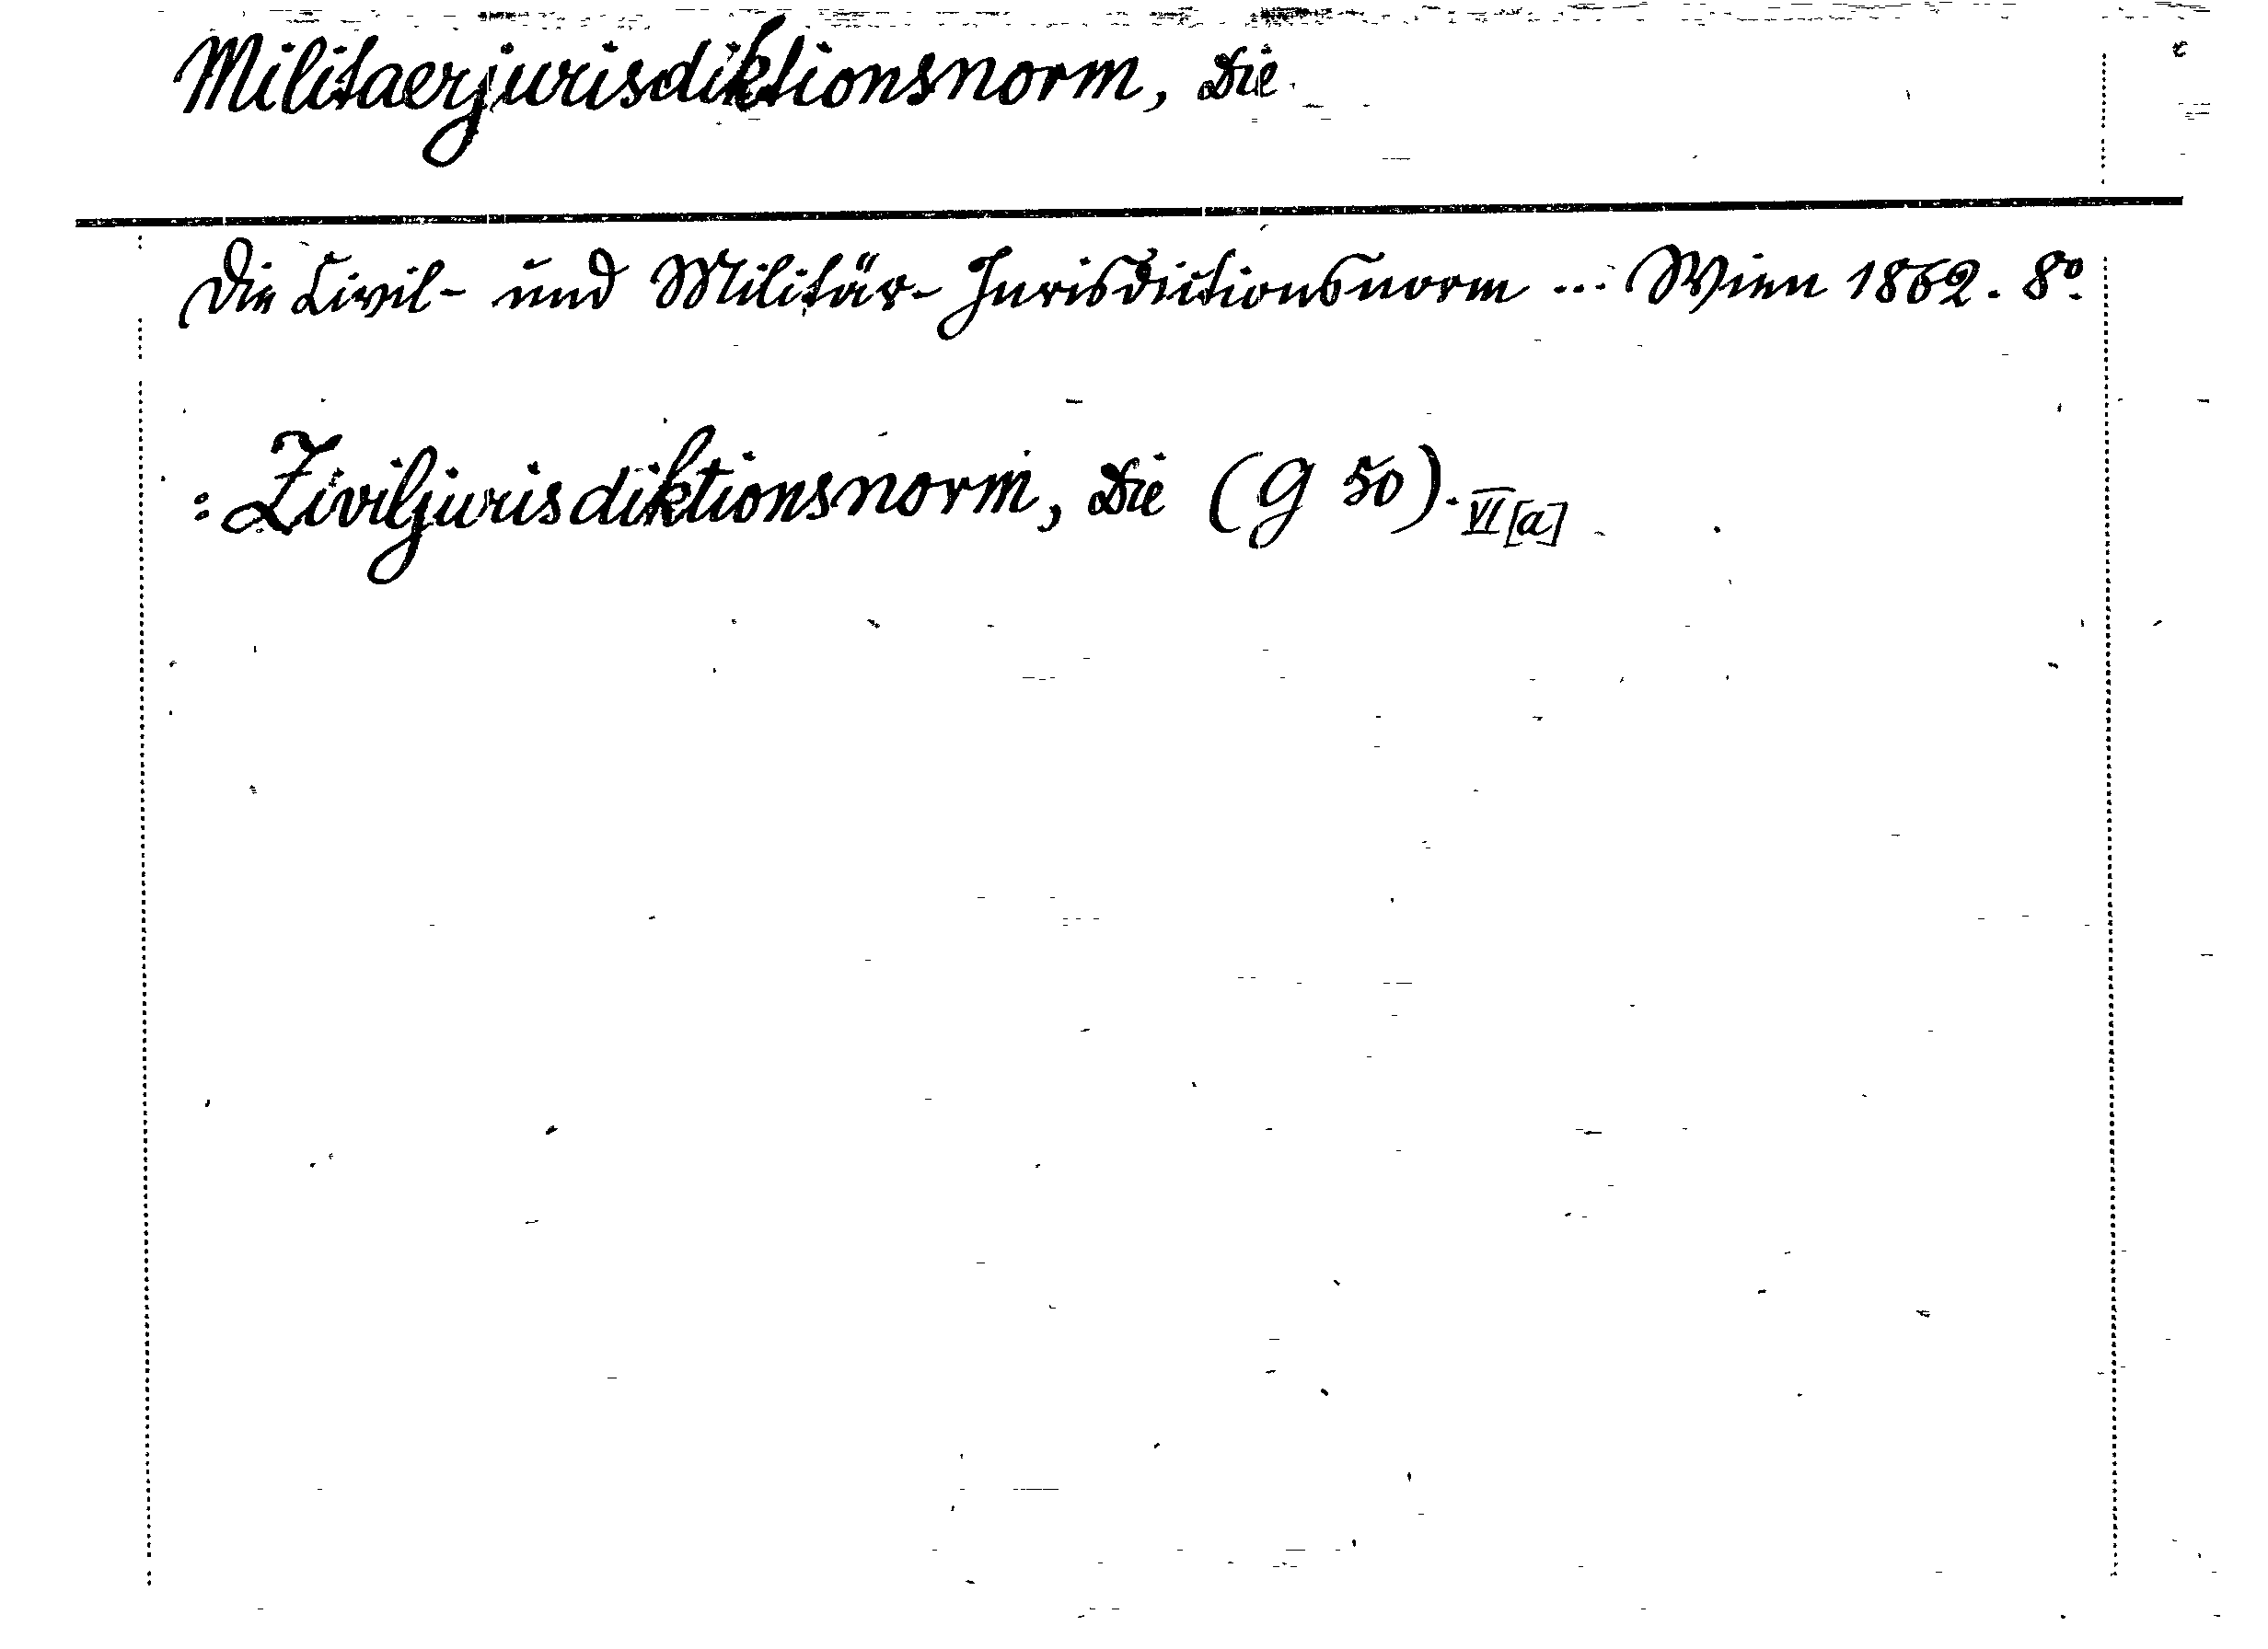 Militaerjurisdiktionsnorm, Die
Die Civil- und Militär-Jurisdictionsnorm ... Wien 1862. 8º.
: Ziviljurisdiktionsnorm, Die (G 50). VI [a]